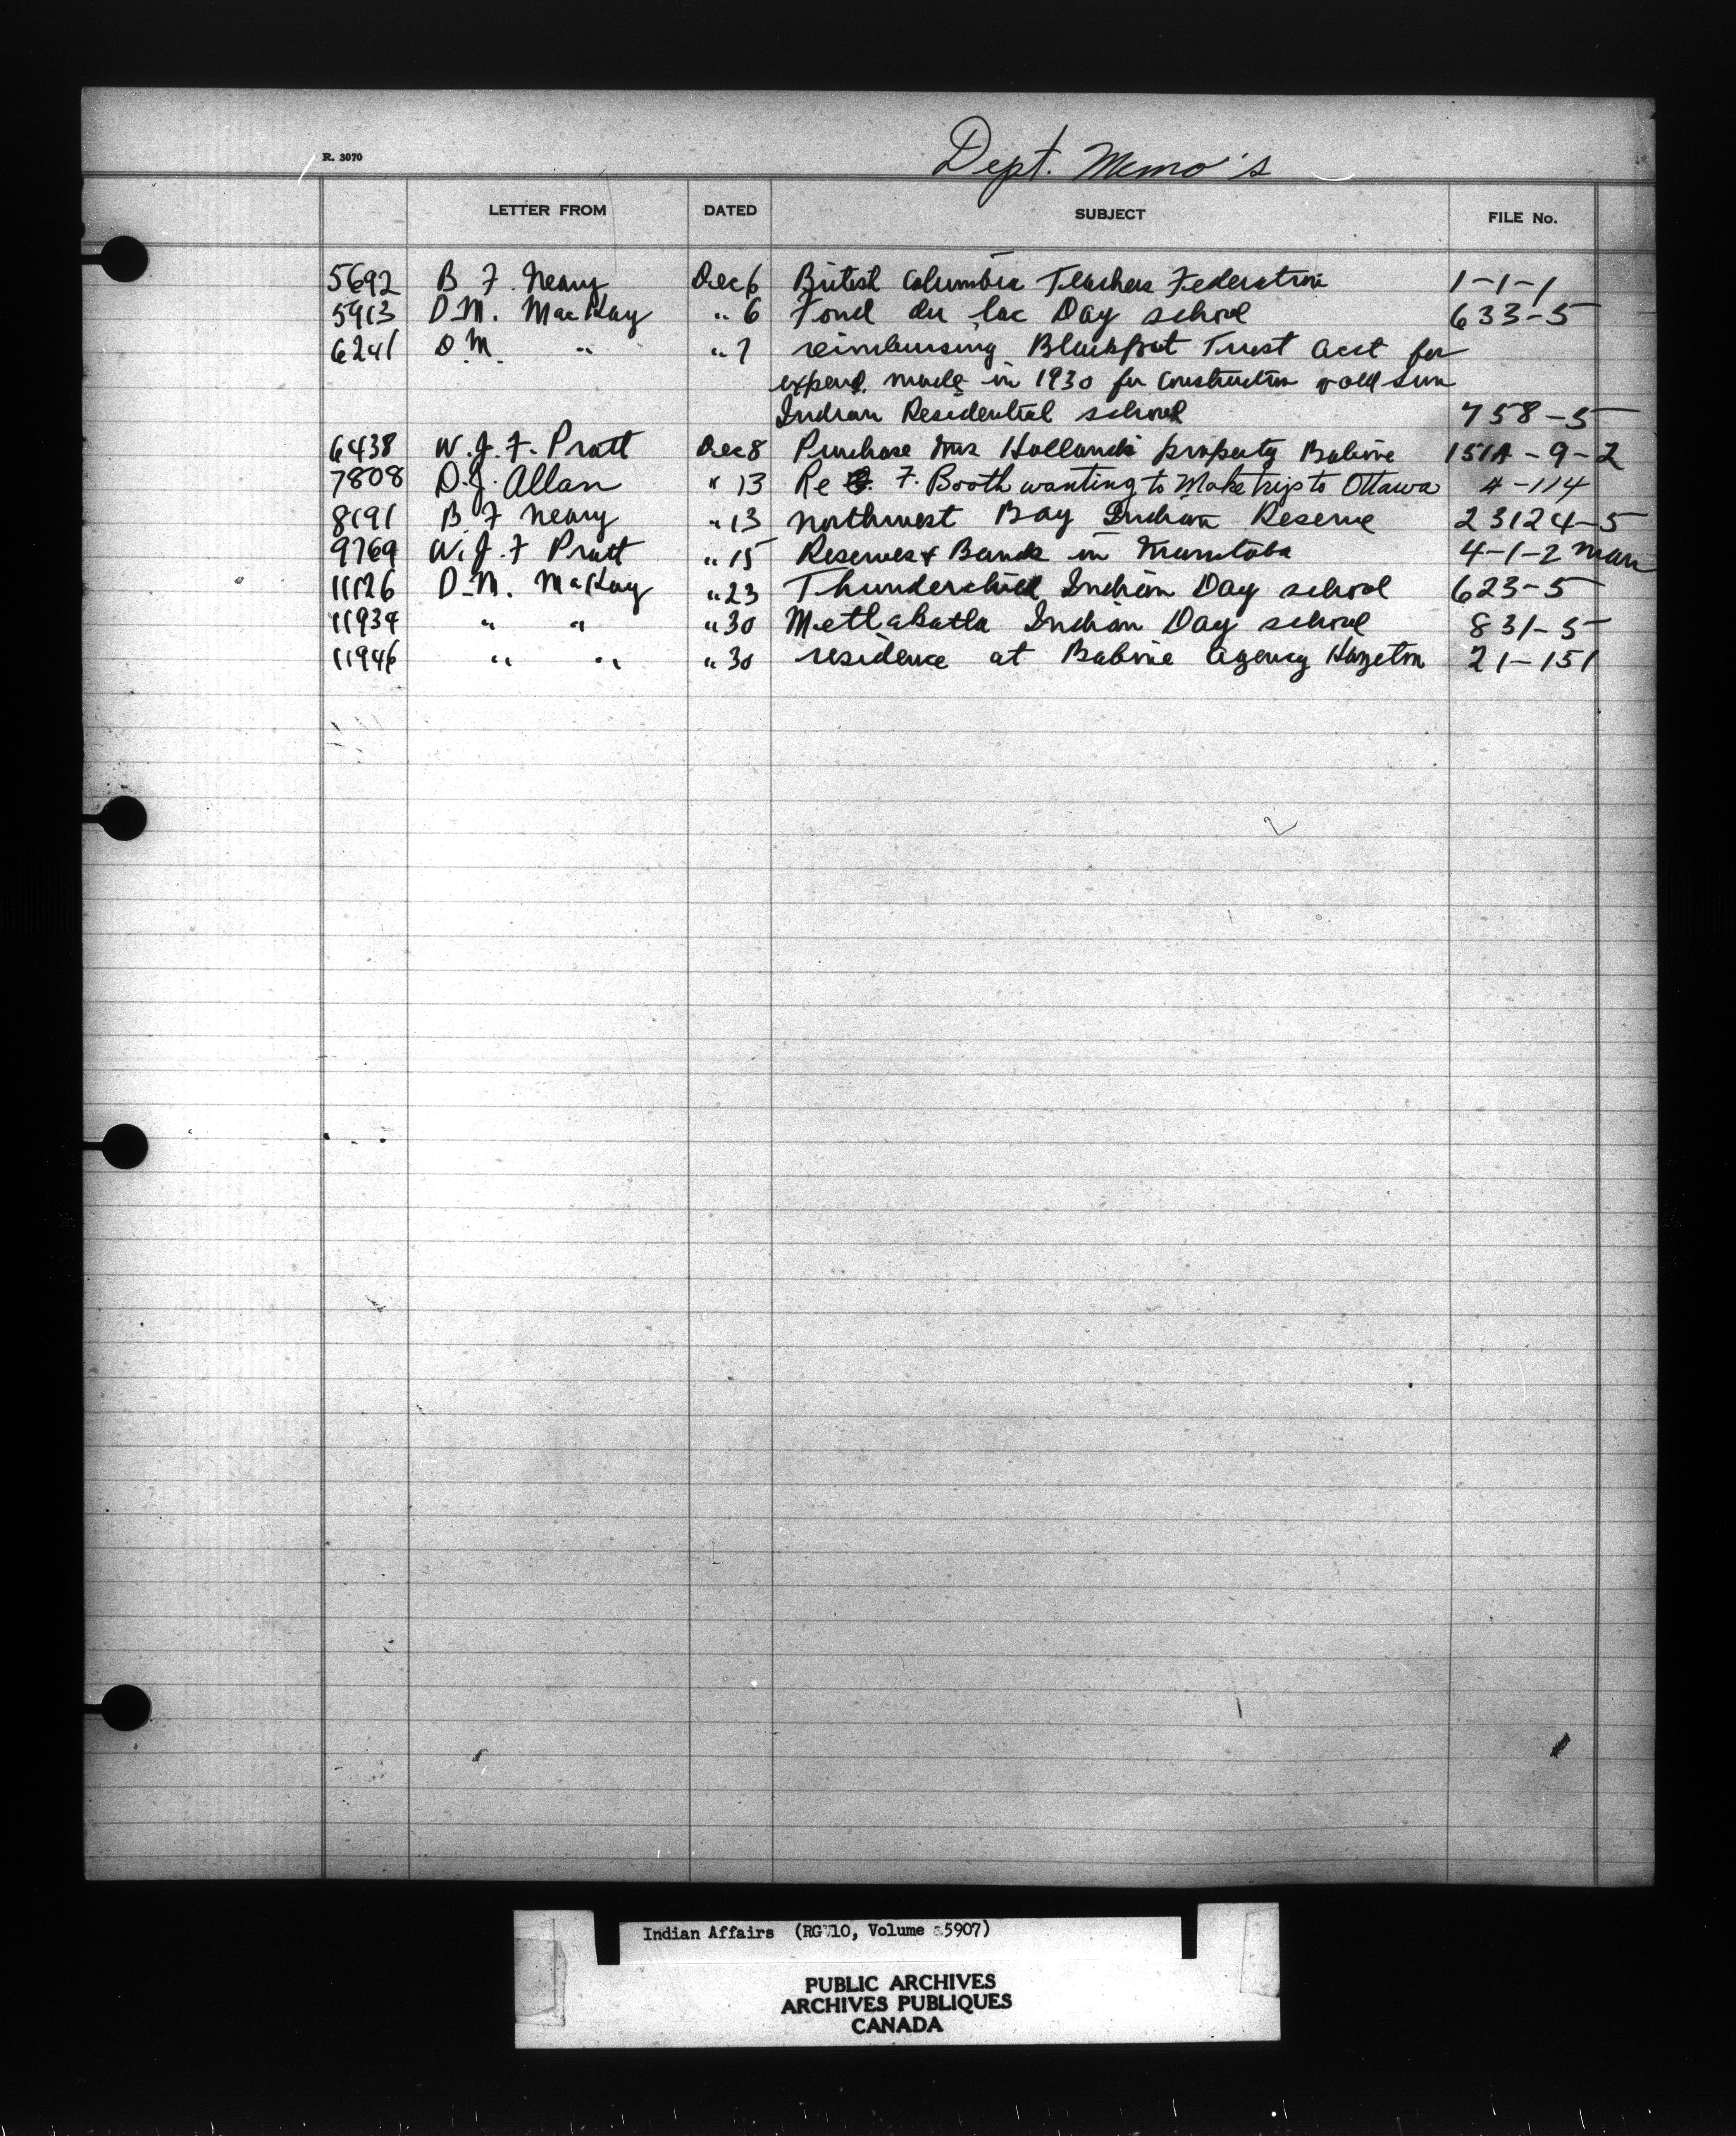 R. 3070
Dept. Memo's
LETTER FROM DATED SUBJECT FILE No.
5692 B F. Neary Dec 6 British Columbia Teachers Federation 1-1-1
5913 D.M. MacKay " 6 Fond du lac Day school 633-5
6241 D.M. " " 7 reimbursing Blackfoot Trust acct for
expend. made in 1930 for construction of old Sun
Indian Residential school 758-5
6438 W. J. F. Pratt Dec 8 Purchase Mrs Hollands property Babine 151A-9-2
7808 D.J. Allan " 13 Re F. Booth wanting to Make trip to Ottawa 4-114
8191 B F Neary " 13 northwest Bay Indian Reserve 23124-5
9769 W. J. F Pratt " 15 Reserves & Bands in Manitoba 4-1-2 Man
11126 D.M. MacKay " 23 Thunderchild Indian Day school 623-5
11934 " " " 30 Metlakatla Indian Day school 831-5
11946 " " " 30 residence at Babine Agency Hazelton 21-151
Indian Affairs (RG 10, Volume 5907)
PUBLIC ARCHIVES
ARCHIVES PUBLIQUES
CANADA